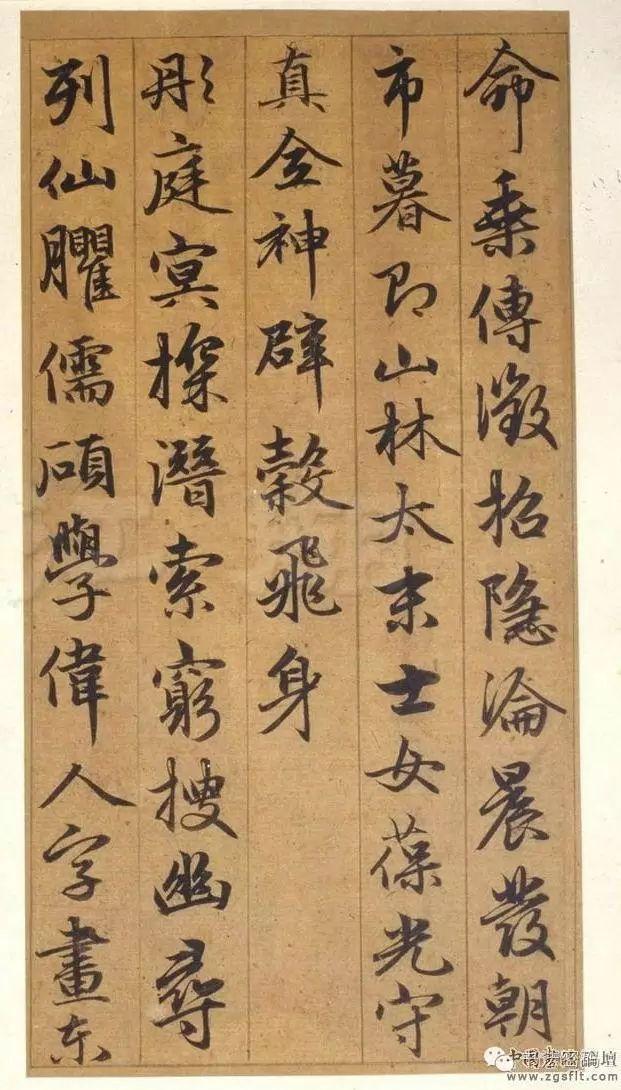 命乘傳徵招隱淪晨發朝
市暮即山林太末士女葆光守
真全神辟穀飛身
彤庭冥探潛索窮搜幽尋
列仙臞儒碩學偉人字畫東
www.zgsflt.com